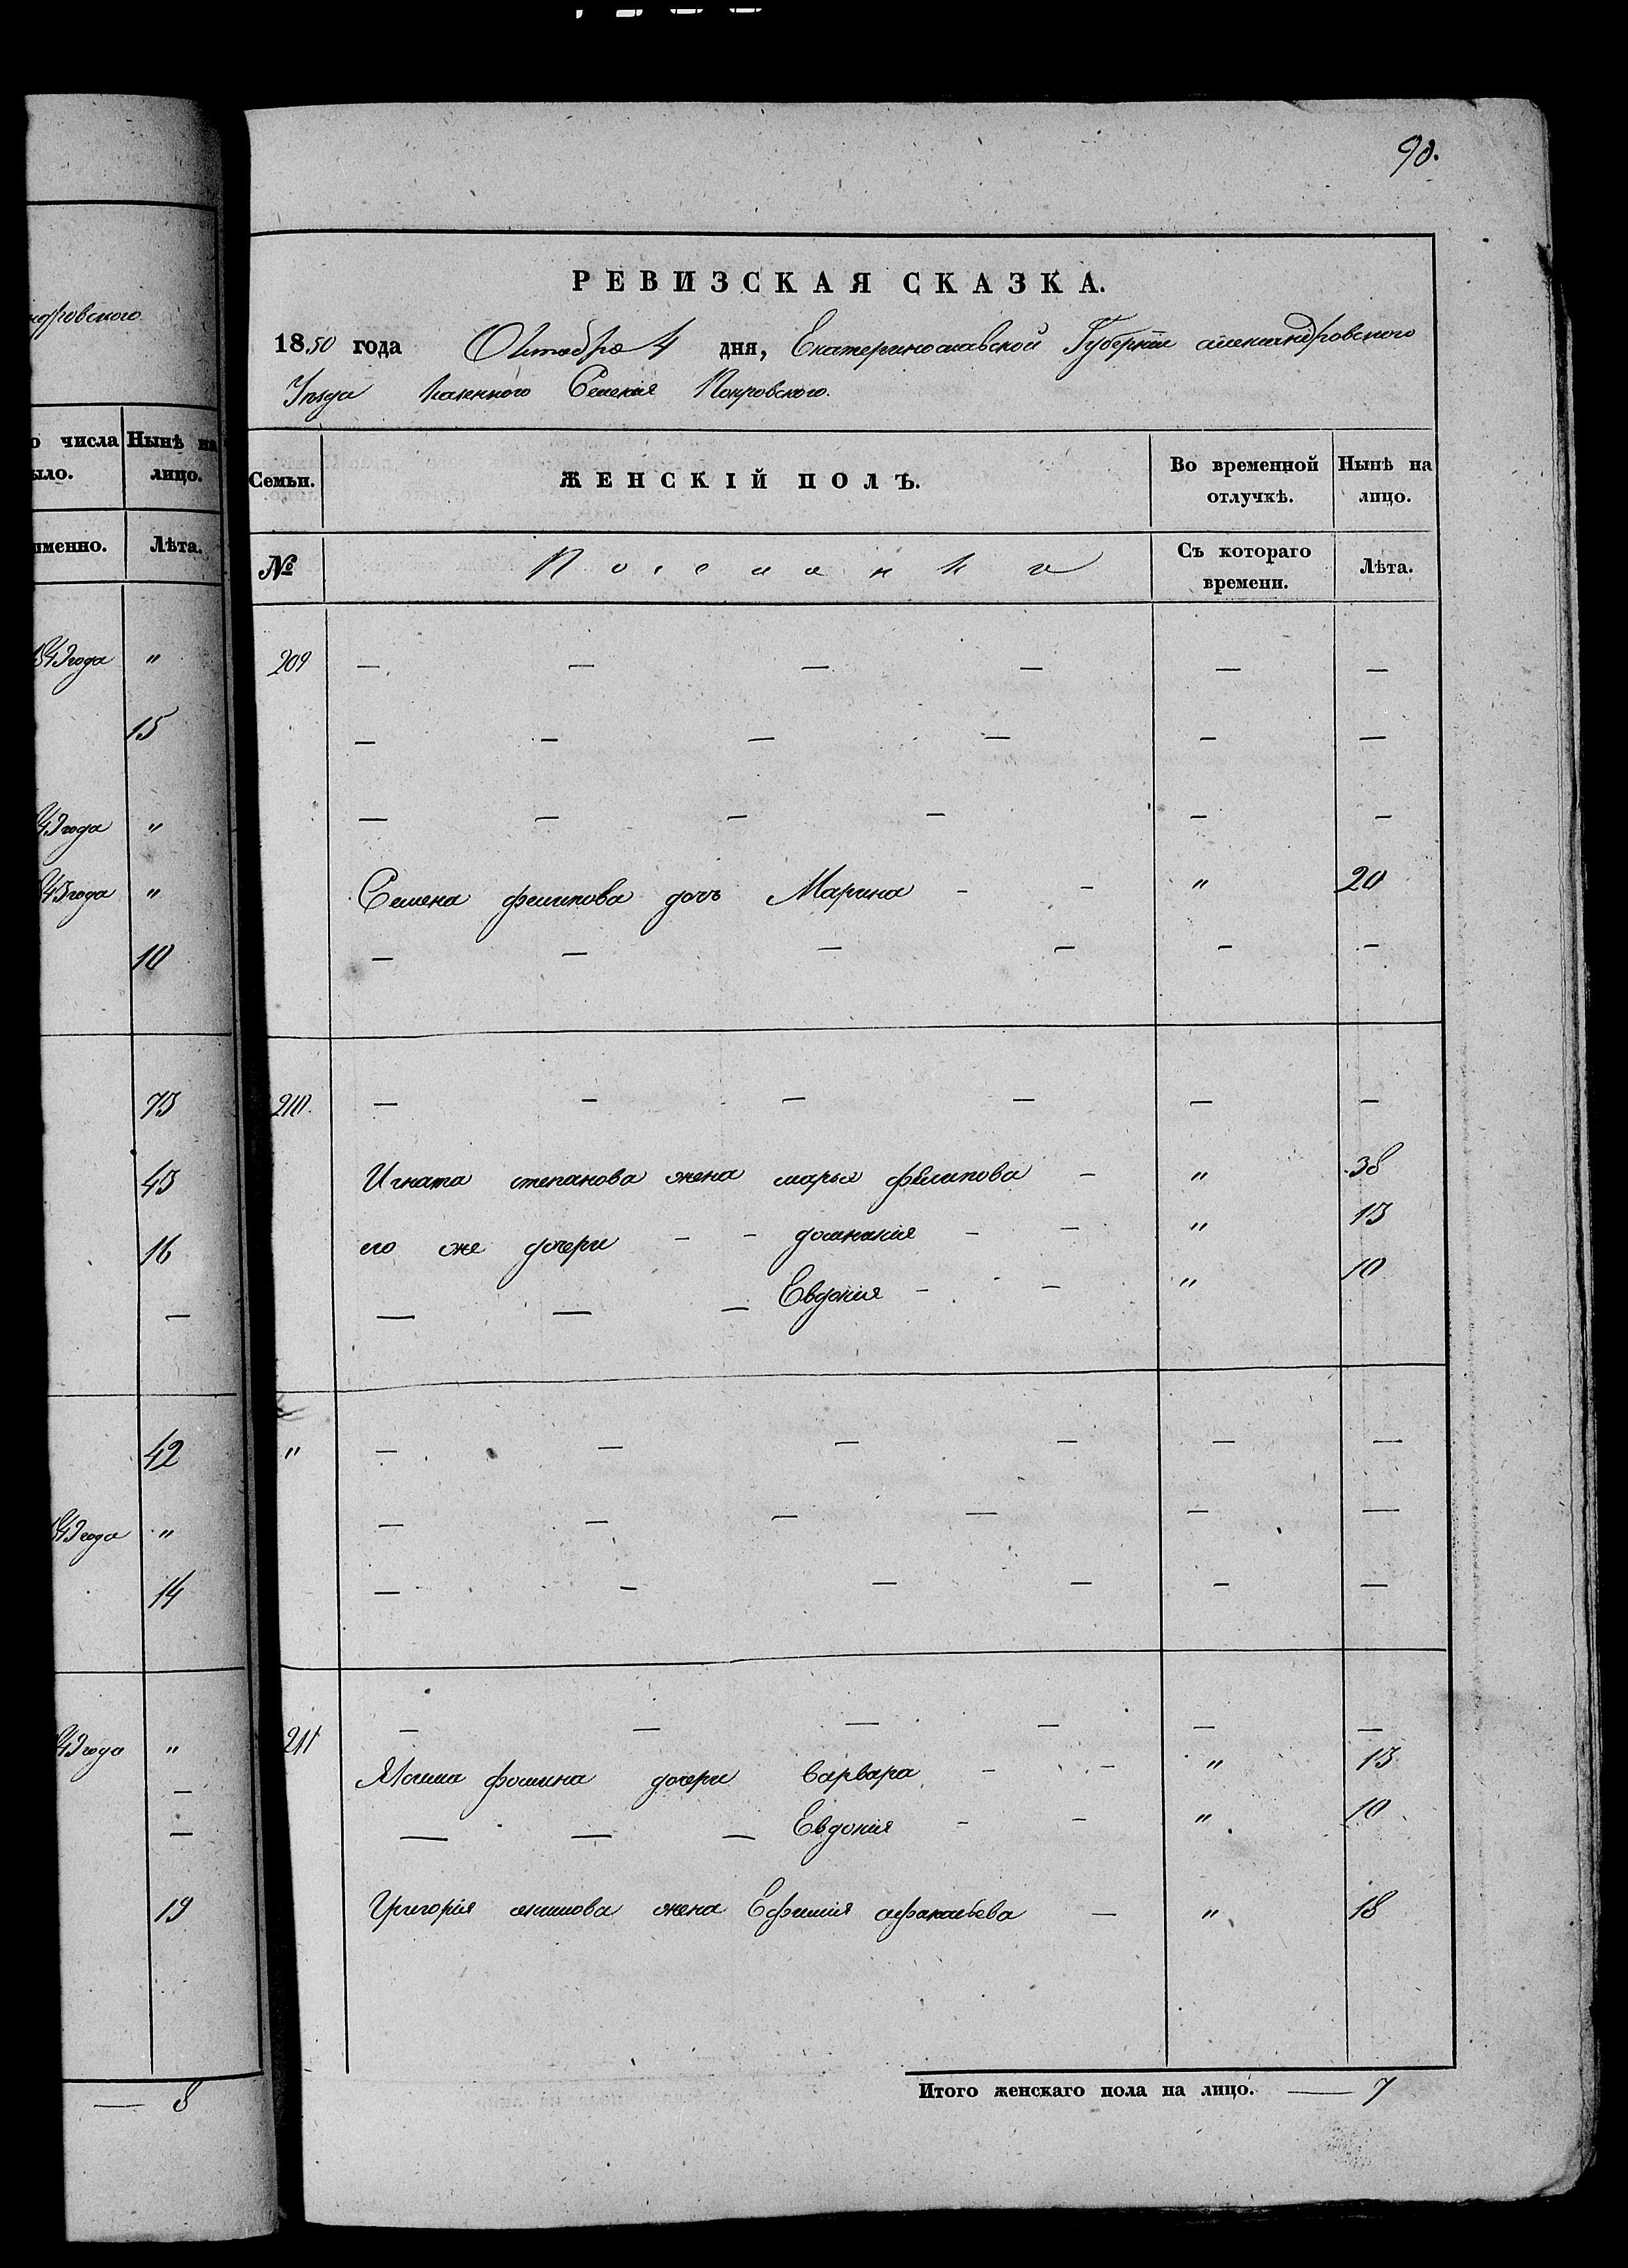 90.
ндровского
РЕВИЗСКАЯ СКАЗКА.
1850 года Октября 4 дня, Екатеринославской Губернии александровского
Уезда казенного Селения Покровского.
о числа Нынѣ на
ыло. лицо.
Семьи. ЖЕНСКІЙ ПОЛЪ. Во временной Нынѣ на
отлучкѣ. лицо.
именно. Лѣта.
№ Поселянка Съ котораго Лѣта.
времени.
1849 года "
209 — — — — — —
15
— — — — — —
— — — — — —
49 года "
"
Семена филипова дочь Марина - - " 20
10
— — — — — —
73
210. — — — — — —
43
Игната степанова жена марья филипова - " 38
16
его же дочери - - домникия - - " 13
— — — Евдокия - - " 10
—
42
" — — — — — —
1849 года "
— — — — — —
14
— — — — — —
49 года "
211 — — — — — —
—
фомина дочери варвара - - " 13
—
— — — Евдокия - - " 10
19
Григория акимова жена Ефимия афанасьева — " 18
— 8
Итого женскаго пола на лицо. — 7